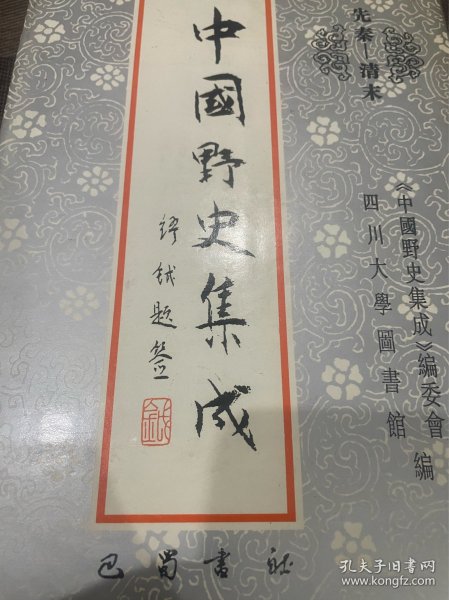 先秦—清末
《中國野史集成》編委會
四川大學圖書館 編
中國野史集成
繆鉞題簽
鉞
巴蜀書社
孔夫子旧书网
www.kongfz.com